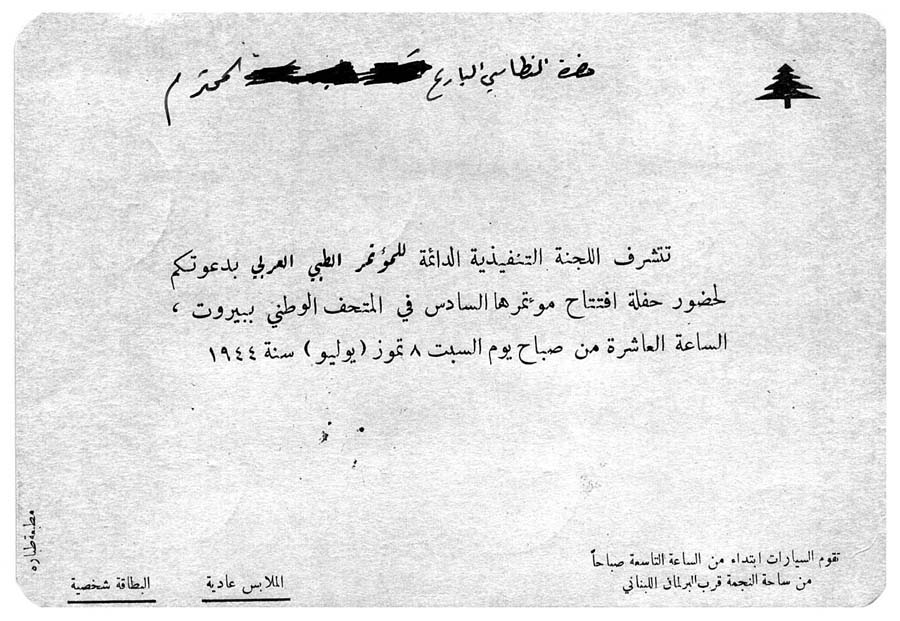 حضرة النطاسي البارع المحترم
تتشرف اللجنة التنفيذية الدائمة للمؤتمر الطبي العربي بدعوتكم
لحضور حفلة افتتاح مؤتمرها السادس في المتحف الوطني ببيروت ،
الساعة العاشرة من صباح يوم السبت ٨ تموز (يوليو) سنة ١٩٤٤
تقوم السيارات ابتداء من الساعة التاسعة صباحاً
من ساحة النجمة قرب البرلمان اللبناني
الملابس عادية
البطاقة شخصية
مطبعة طباره